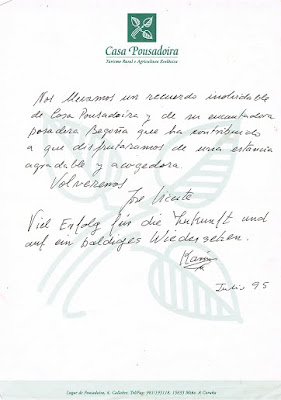 Casa Pousadoira
Turismo Rural e Agricultura Ecolóxica
Nos llevamos un recuerdo inolvidable
de Casa Pousadoira y de su encantadora
posadera Begoña que ha contribuido
a que disfrutaramos de una estancia
agradable y acogedora.
Volveremos
José Vicente
Viel Erfolg für die Zukunft und
auf ein baldiges Wiedersehen.
Karin
Julio 95
Lugar de Pousadoira, 4. Callobre. Tel/Fax: 981/795118 - 15635 Miño. A Coruña